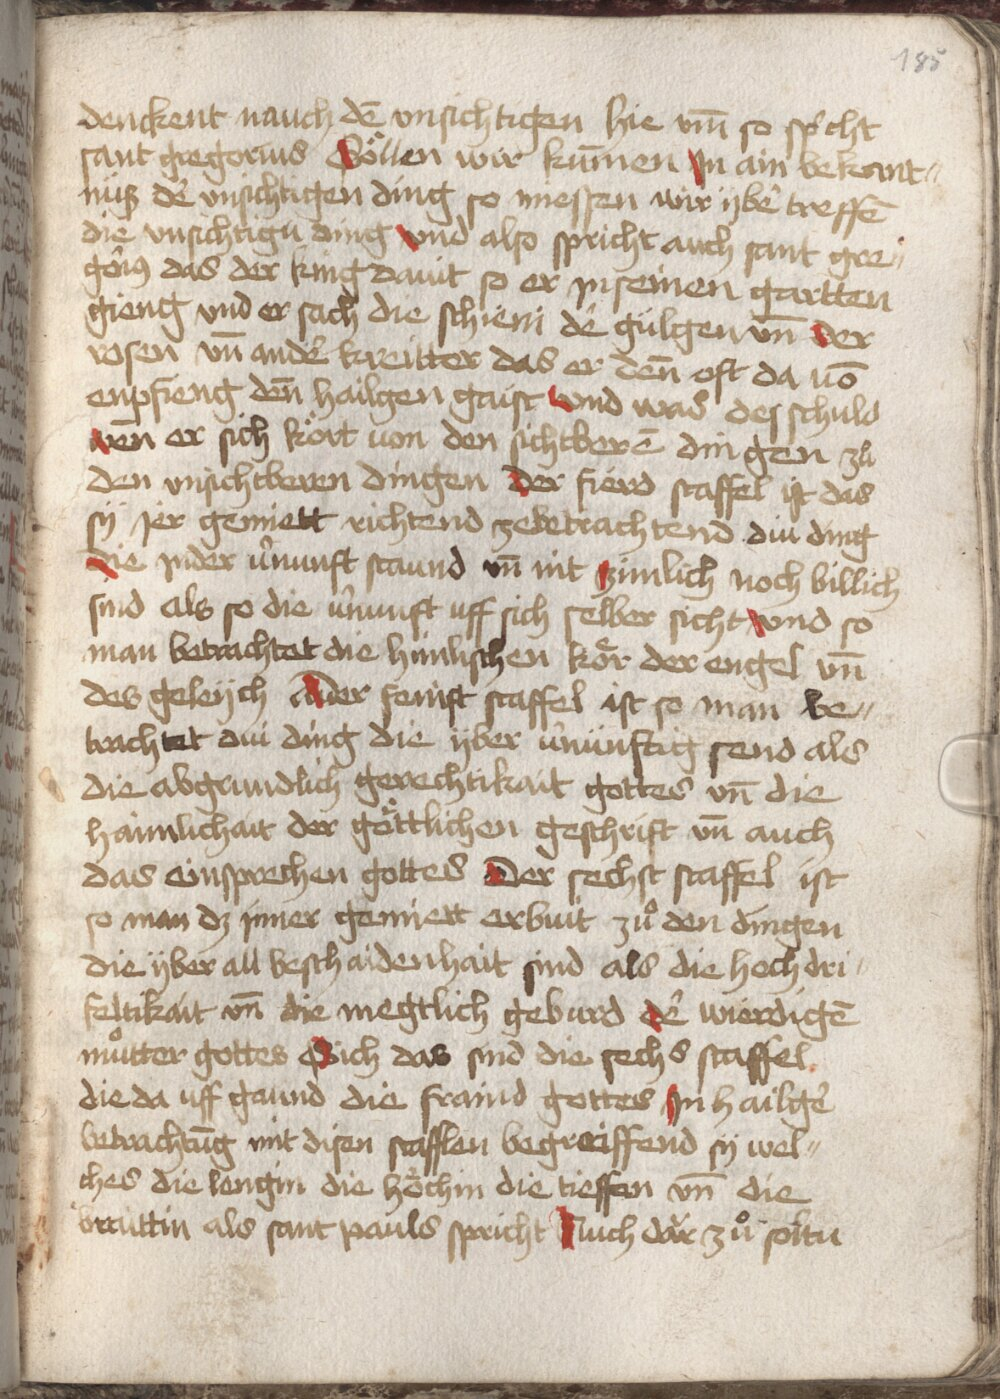 185
denckent nauch dē vnsichtigen hie vm̄ so sp̄cht
sant gregorius Söllen wir kūmen In ain bekant〃
nüß d̄e vnsichtigen ding so miessen wir ÿbe᷑ treffē
die vnsichtigu ding vnd also spricht auch sant gre〃
go᷑iꝰ das der king dauit so er in seinen gartten
gieng vnd er sach die schieni de᷑ gilgen vn̄ der
rosen vn̄ ande᷑ kreitter das er den̄ oft da uō
enpfieng den̄ hailgen gaist vnd was des schuld
wen̄ er sich kört von den sichtberē dingen zů
den vnsichtberen dingen der fierd staffel ist das
sÿ ier gemiett richtend zebetrachtend diu ding
die inder v᷑nunft staund vn̄ nit zimlich noch billich
sind als so die v᷑nunft uff sich selber sicht vnd so
man betrachtet die himlischen kör der engel vn̄
des geleÿch ader femft staffel ist so man be〃
trachtet diu ding die ÿber v᷑nünftig send als
die abgrundlich gerechtikait gottes vn̄ die
haimlichait der göttlichen geschrift vn̄ auch
das einsprechen gottes Der sechst staffel ist
so man dz inner gemiett erbuit zů den dingen
die ÿber all beschaidenhait sind als die hoch dri〃
feltikait vn̄ die megtlich geburd de᷑ wierdigē
můtter gottes Sich das sind die sechs staffel
die da uff gaund die fraind gottes In hailge᷑
betrachtūg mit disen stafflen begreiffend sÿ wel〃
ches die lengin die höchin die tieffen vn̄ die
braittin als sant pauls spricht Auch dar zů soltu